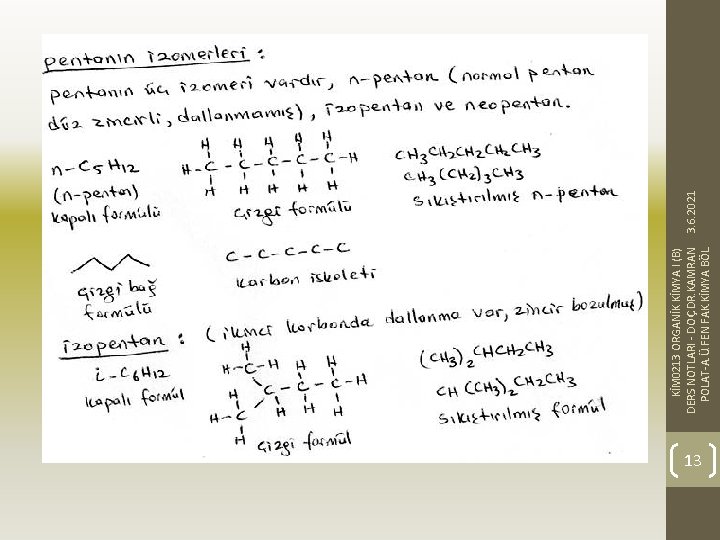 pentanın izomerleri :
pentanın üç izomeri vardır, n-pentan (normal pentan
düz zincirli, dallanmamış), izopentan ve neopentan.
n-C5H12
(n-pentan)
kapalı formülü
H H H H H
H-C-C-C-C-C-H
H H H H H
çizgi formülü
CH3CH2CH2CH2CH3
CH3(CH2)3CH3
sıkıştırılmış n-pentan
çizgi bağ
formülü
C-C-C-C-C
karbon iskeleti
izopentan : (ikinci karbonda dallanma var, zincir bozulmuş)
i-C6H12
kapalı formül
H
H-C-H H H
H C-C-C-H
H-C H H H
H
çizgi formül
(CH3)2CHCH2CH3
CH(CH3)2CH2CH3
sıkıştırılmış formül
KİM0213 ORGANİK KİMYA I (B)
DERS NOTLARI - DOÇ.DR.KAMRAN
POLAT-A.Ü FEN FAK KİMYA BÖL
3.6.2021
13